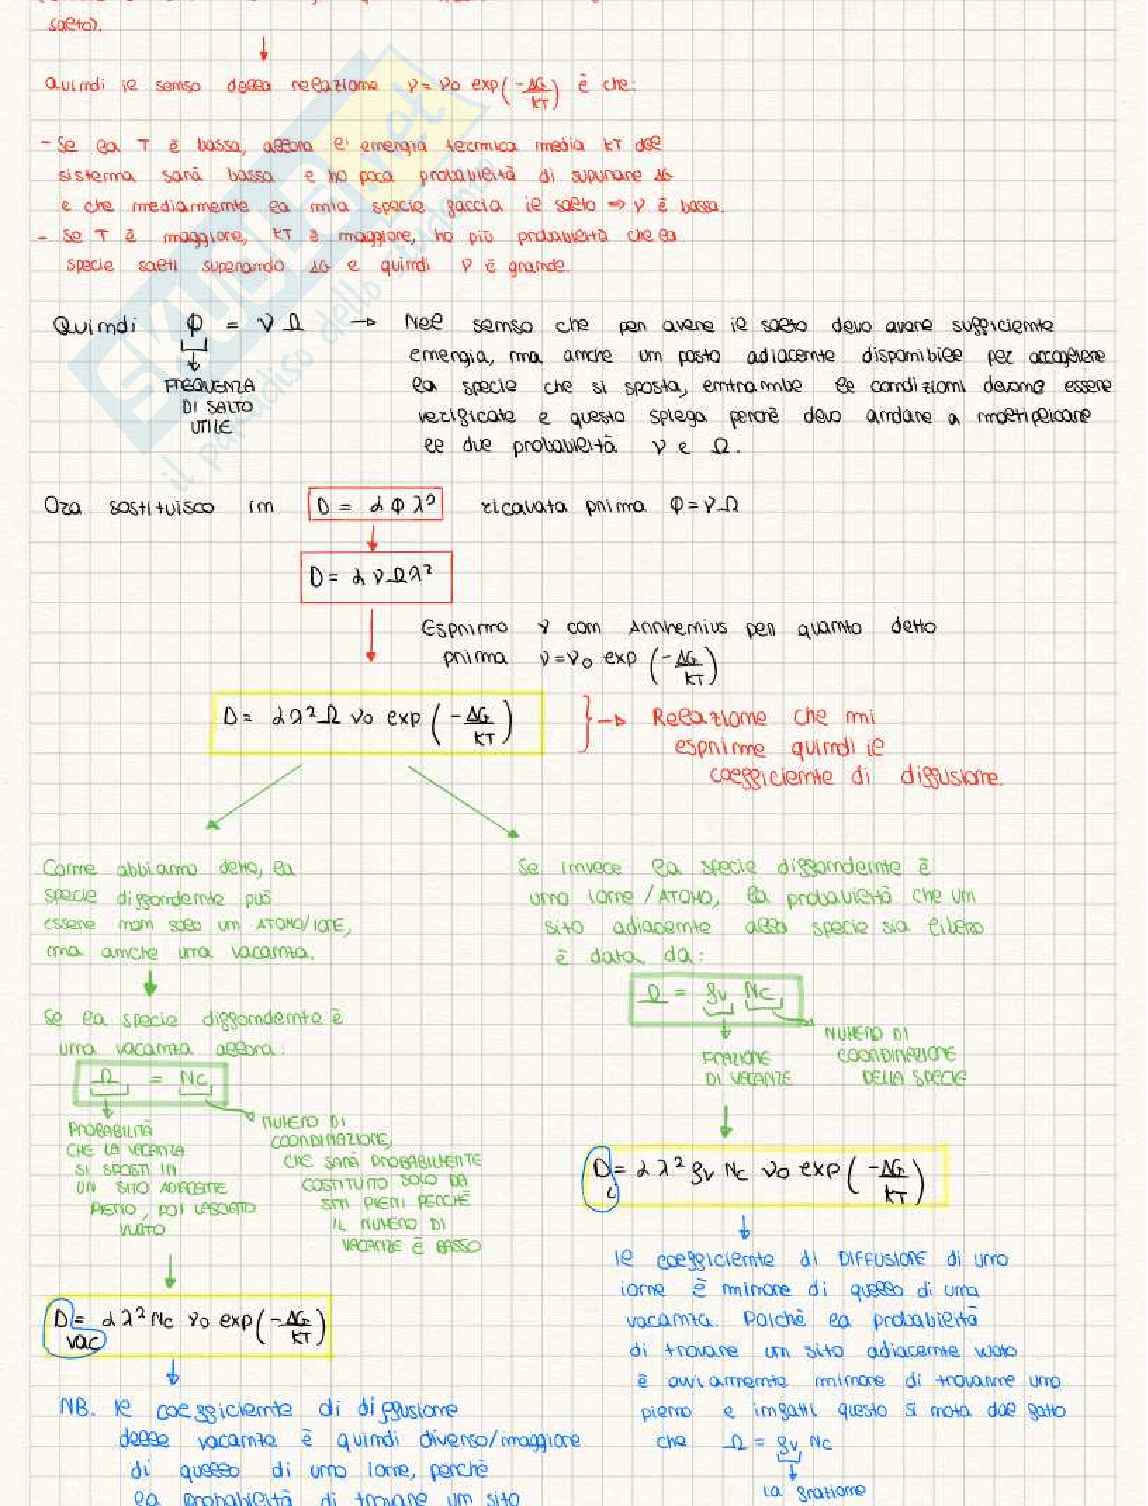 salto).
Quindi il senso della relazione ν = ν₀ exp(-ΔG/KT) è che:
- Se la T è bassa, allora l'energia termica media KT del
sistema sarà bassa e ho poca probabilità di superare ΔG
e che mediamente la mia specie faccia il salto ⇒ ν è bassa.
- Se T è maggiore, KT è maggiore, ho più probabilità che la
specie salti superando ΔG e quindi ν è grande.
Quindi φ = ν Ω → Nel senso che per avere il salto devo avere sufficiente
energia, ma anche un posto adiacente disponibile per accogliere
FREQUENZA
DI SALTO
UTILE
la specie che si sposta, entrambe le condizioni devono essere
verificate e questo spiega perché devo andare a moltiplicare
le due probabilità ν e Ω.
Ora sostituisco in D = α φ λ² ricavata prima φ = ν Ω
D = α ν Ω λ²
Esprimo ν con Arrhenius per quanto detto
prima ν = ν₀ exp (-ΔG/KT)
D = α λ² Ω ν₀ exp (-ΔG/KT) } → Relazione che mi
esprime quindi il
coefficiente di diffusione.
Come abbiamo detto, la
specie diffondente può
essere non solo un ATOMO/IONE,
ma anche una vacanza.
Se la specie diffondente è
una vacanza allora:
Ω = Nc
PROBABILITÀ
CHE LA VACANZA
SI SPOSTI IN
UN SITO ADIACENTE
PIENO, POI LASCIATO
VUOTO
NUMERO DI
COORDINAZIONE,
CHE SARÀ PROBABILMENTE
COSTITUITO SOLO DA
SITI PIENI PERCHÉ
IL NUMERO DI
VACANZE È BASSO
D vac = α λ² Nc ν₀ exp (-ΔG/KT)
NB. Il coefficiente di diffusione
delle vacanze è quindi diverso/maggiore
di quello di uno ione, perché
la probabilità di trovare un sito
Se invece la specie diffondente è
uno ione / ATOMO, la probabilità che un
sito adiacente alla specie sia libero
è data da:
Ω = fv Nc
FRAZIONE
DI VACANZE
NUMERO DI
COORDINAZIONE
DELLA SPECIE
D c = α λ² fv Nc ν₀ exp (-ΔG/KT)
Il coefficiente di DIFFUSIONE di uno
ione è minore di quello di una
vacanza. Poichè la probabilità
di trovare un sito adiacente vuoto
è ovviamente minore di trovarne uno
pieno e infatti questo si nota dal fatto
che Ω = fv Nc
la frazione
SKUOLA.net
il paradiso dello studente